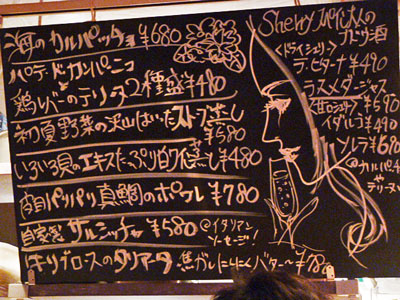 海のカルパッチョ ¥680
パテ・ド・カンパーニュ
鶏レバーのテリーヌ 2種盛 ¥480
初夏野菜の沢山はいったストーブ蒸し
¥580
いろいろ貝のエキスたっぷり白ワイン蒸し ¥480
皮目パリパリ真鯛のポワレ ¥780
自家製サルシッチャ ¥580
@イタリアン
ソーセージ!
リブロースのタリアータ 焦がしにんにくバター
Sherry
ブドウ酒
<ドライシェリー>
ラ・ヒターナ
¥490
ラスメダージャス
¥590
<甘口シェリー>
イダルゴ
¥490
ソレラ ¥690
@カルパッチョ
テリーヌ